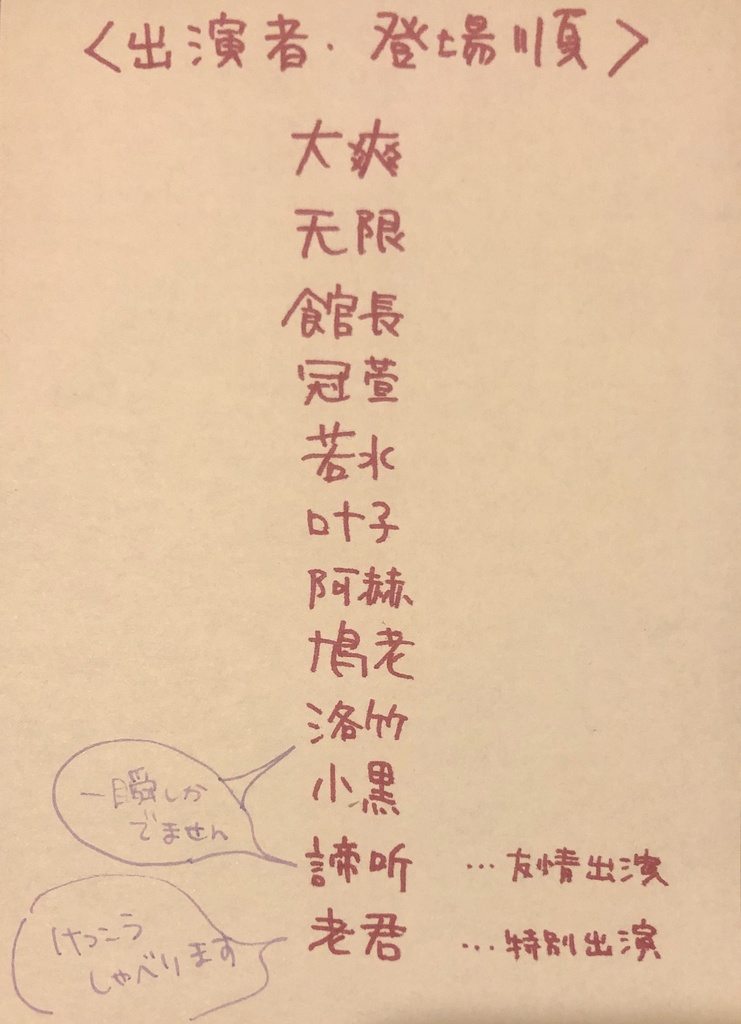 <出演者・登場順>
大爽
无限
館長
冠萱
若水
叶子
阿赫
鳩老
洛竹
小黒
諦听 …友情出演
老君 …特別出演
一瞬しか
でません
けっこう
しゃべります